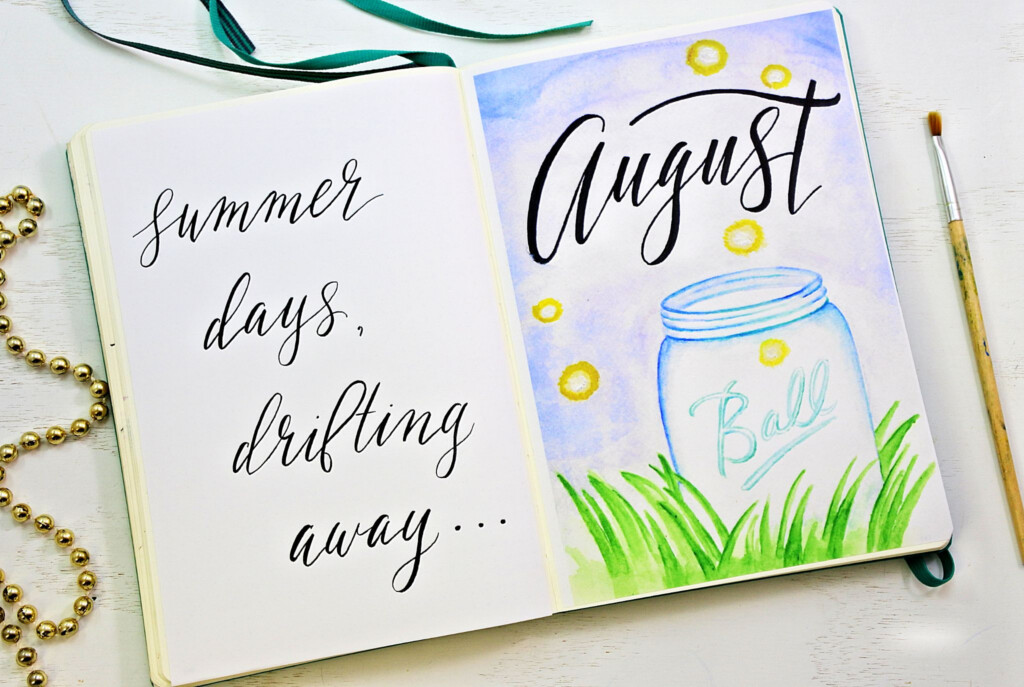 summer
days,
drifting
away...
August
Ball